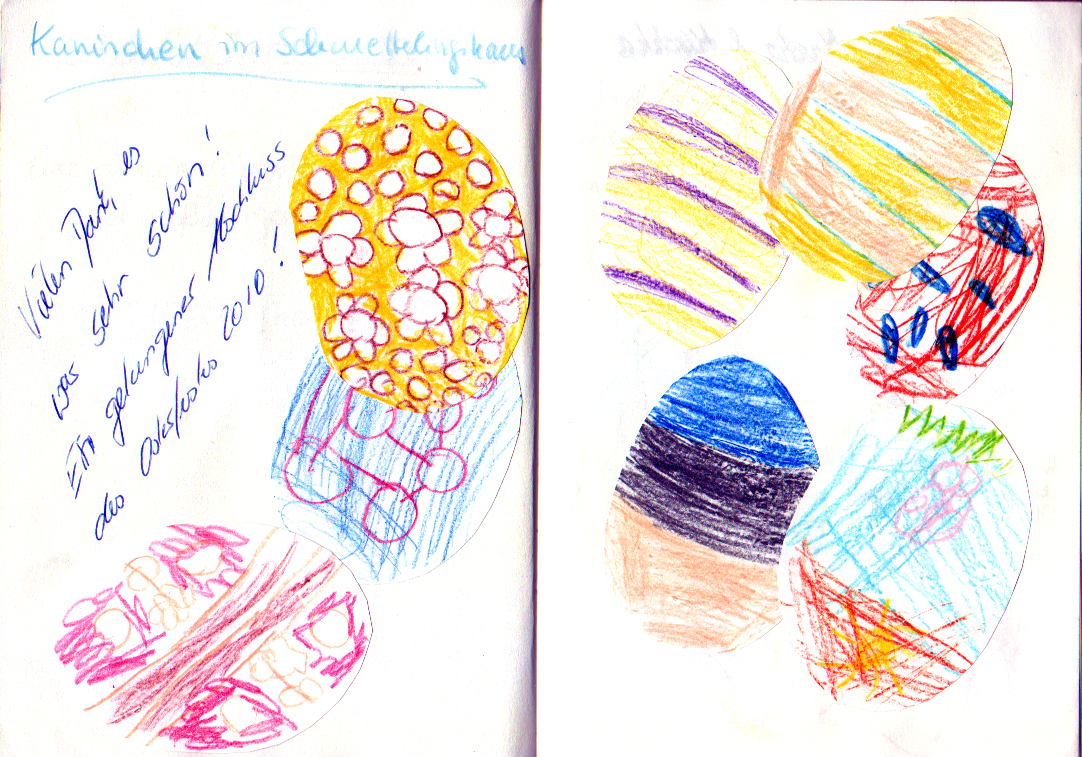 Kaninchen im Schmetterlingshaus
Vielen Dank, es
war sehr schön!
Ein gelungener Abschluss
des Osterfestes 2010!